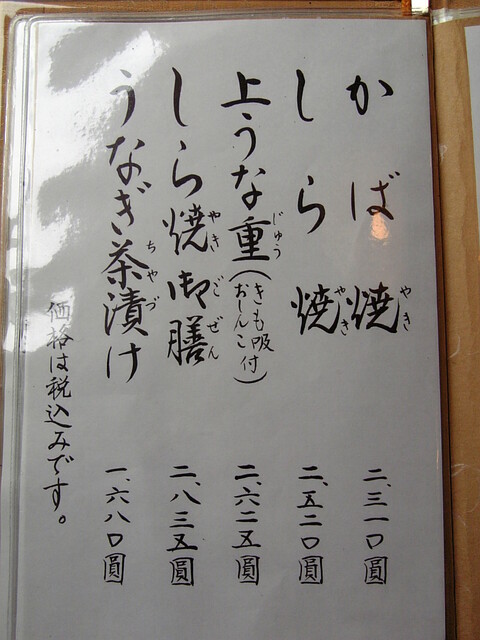 かば焼 二、三一〇圓
やき
しら焼 二、五二〇圓
やき
上うな重(きも吸付おしんこ) 二、六二五圓
じゅう
しら焼御膳 二、八三五圓
やきごぜん
うなぎ茶漬け 一、六八〇圓
ちゃづ
価格は税込みです。